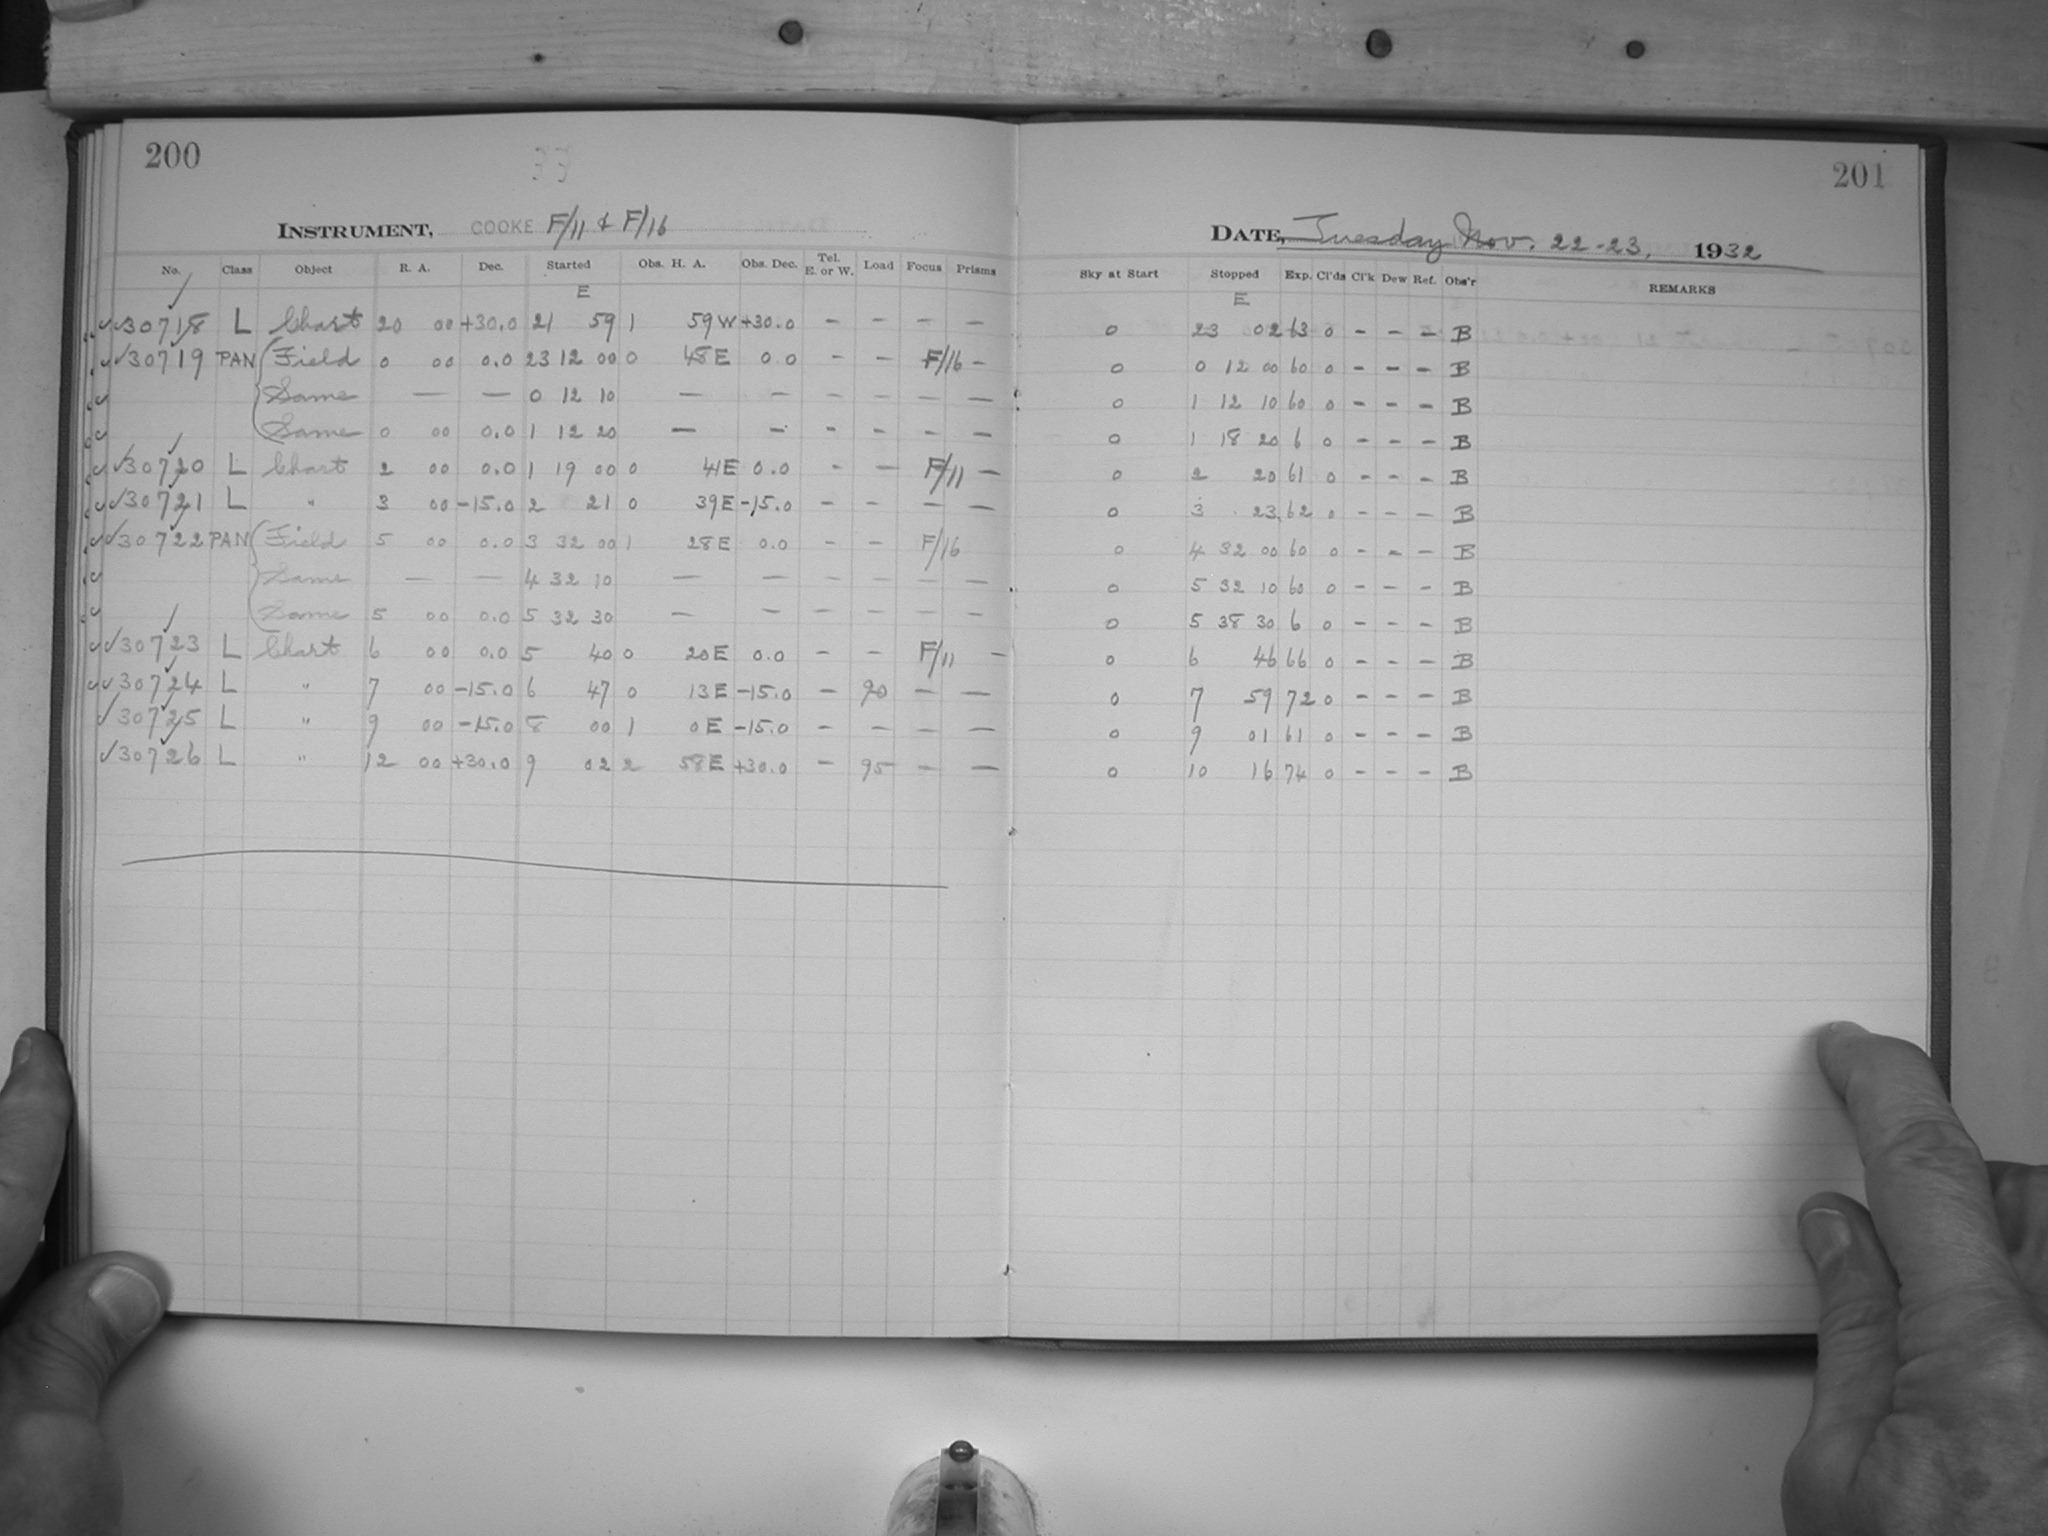 200
33
INSTRUMENT, COOKE F/11 & F/16
No. Class Object R. A. Dec. Started Obs. H. A. Obs. Dec. Tel. E. or W. Load Focus Prisms
E
30718 L Chart 20 00 +30.0 21 59 1 59 W +30.0 - - - -
30719 PAN Field 0 00 0.0 23 12 00 0 48 E 0.0 - - F/16 -
Same — — 0 12 10 — - - - - -
Same 0 00 0.0 1 12 20 — - - - - -
30720 L Chart 2 00 0.0 1 19 00 0 41 E 0.0 - - F/11 -
30721 L " 3 00 -15.0 2 21 0 39 E -15.0 - - - -
30722 PAN Field 5 00 0.0 3 32 00 1 28 E 0.0 - - F/16
Same — — 4 32 10 — - - - - -
Same 5 00 0.0 5 32 30 — - - - - -
30723 L Chart 6 00 0.0 5 40 0 20 E 0.0 - - F/11 -
30724 L " 7 00 -15.0 6 47 0 13 E -15.0 - 90 - -
30725 L " 9 00 -15.0 8 00 1 0 E -15.0 - - - -
30726 L " 12 00 +30.0 9 02 2 58 E +30.0 - 95 - -
201
DATE, Tuesday Nov. 22-23, 1932
Sky at Start Stopped Exp. Cl'ds Cl'k Dew Ref. Obs'r REMARKS
E
0 23 02 63 0 - - - B
0 0 12 00 60 0 - - - B
0 1 12 10 60 0 - - - B
0 1 18 20 6 0 - - - B
0 2 20 61 0 - - - B
0 3 23 62 0 - - - B
0 4 32 00 60 0 - - - B
0 5 32 10 60 0 - - - B
0 5 38 30 6 0 - - - B
0 6 46 66 0 - - - B
0 7 59 72 0 - - - B
0 9 01 61 0 - - - B
0 10 16 74 0 - - - B